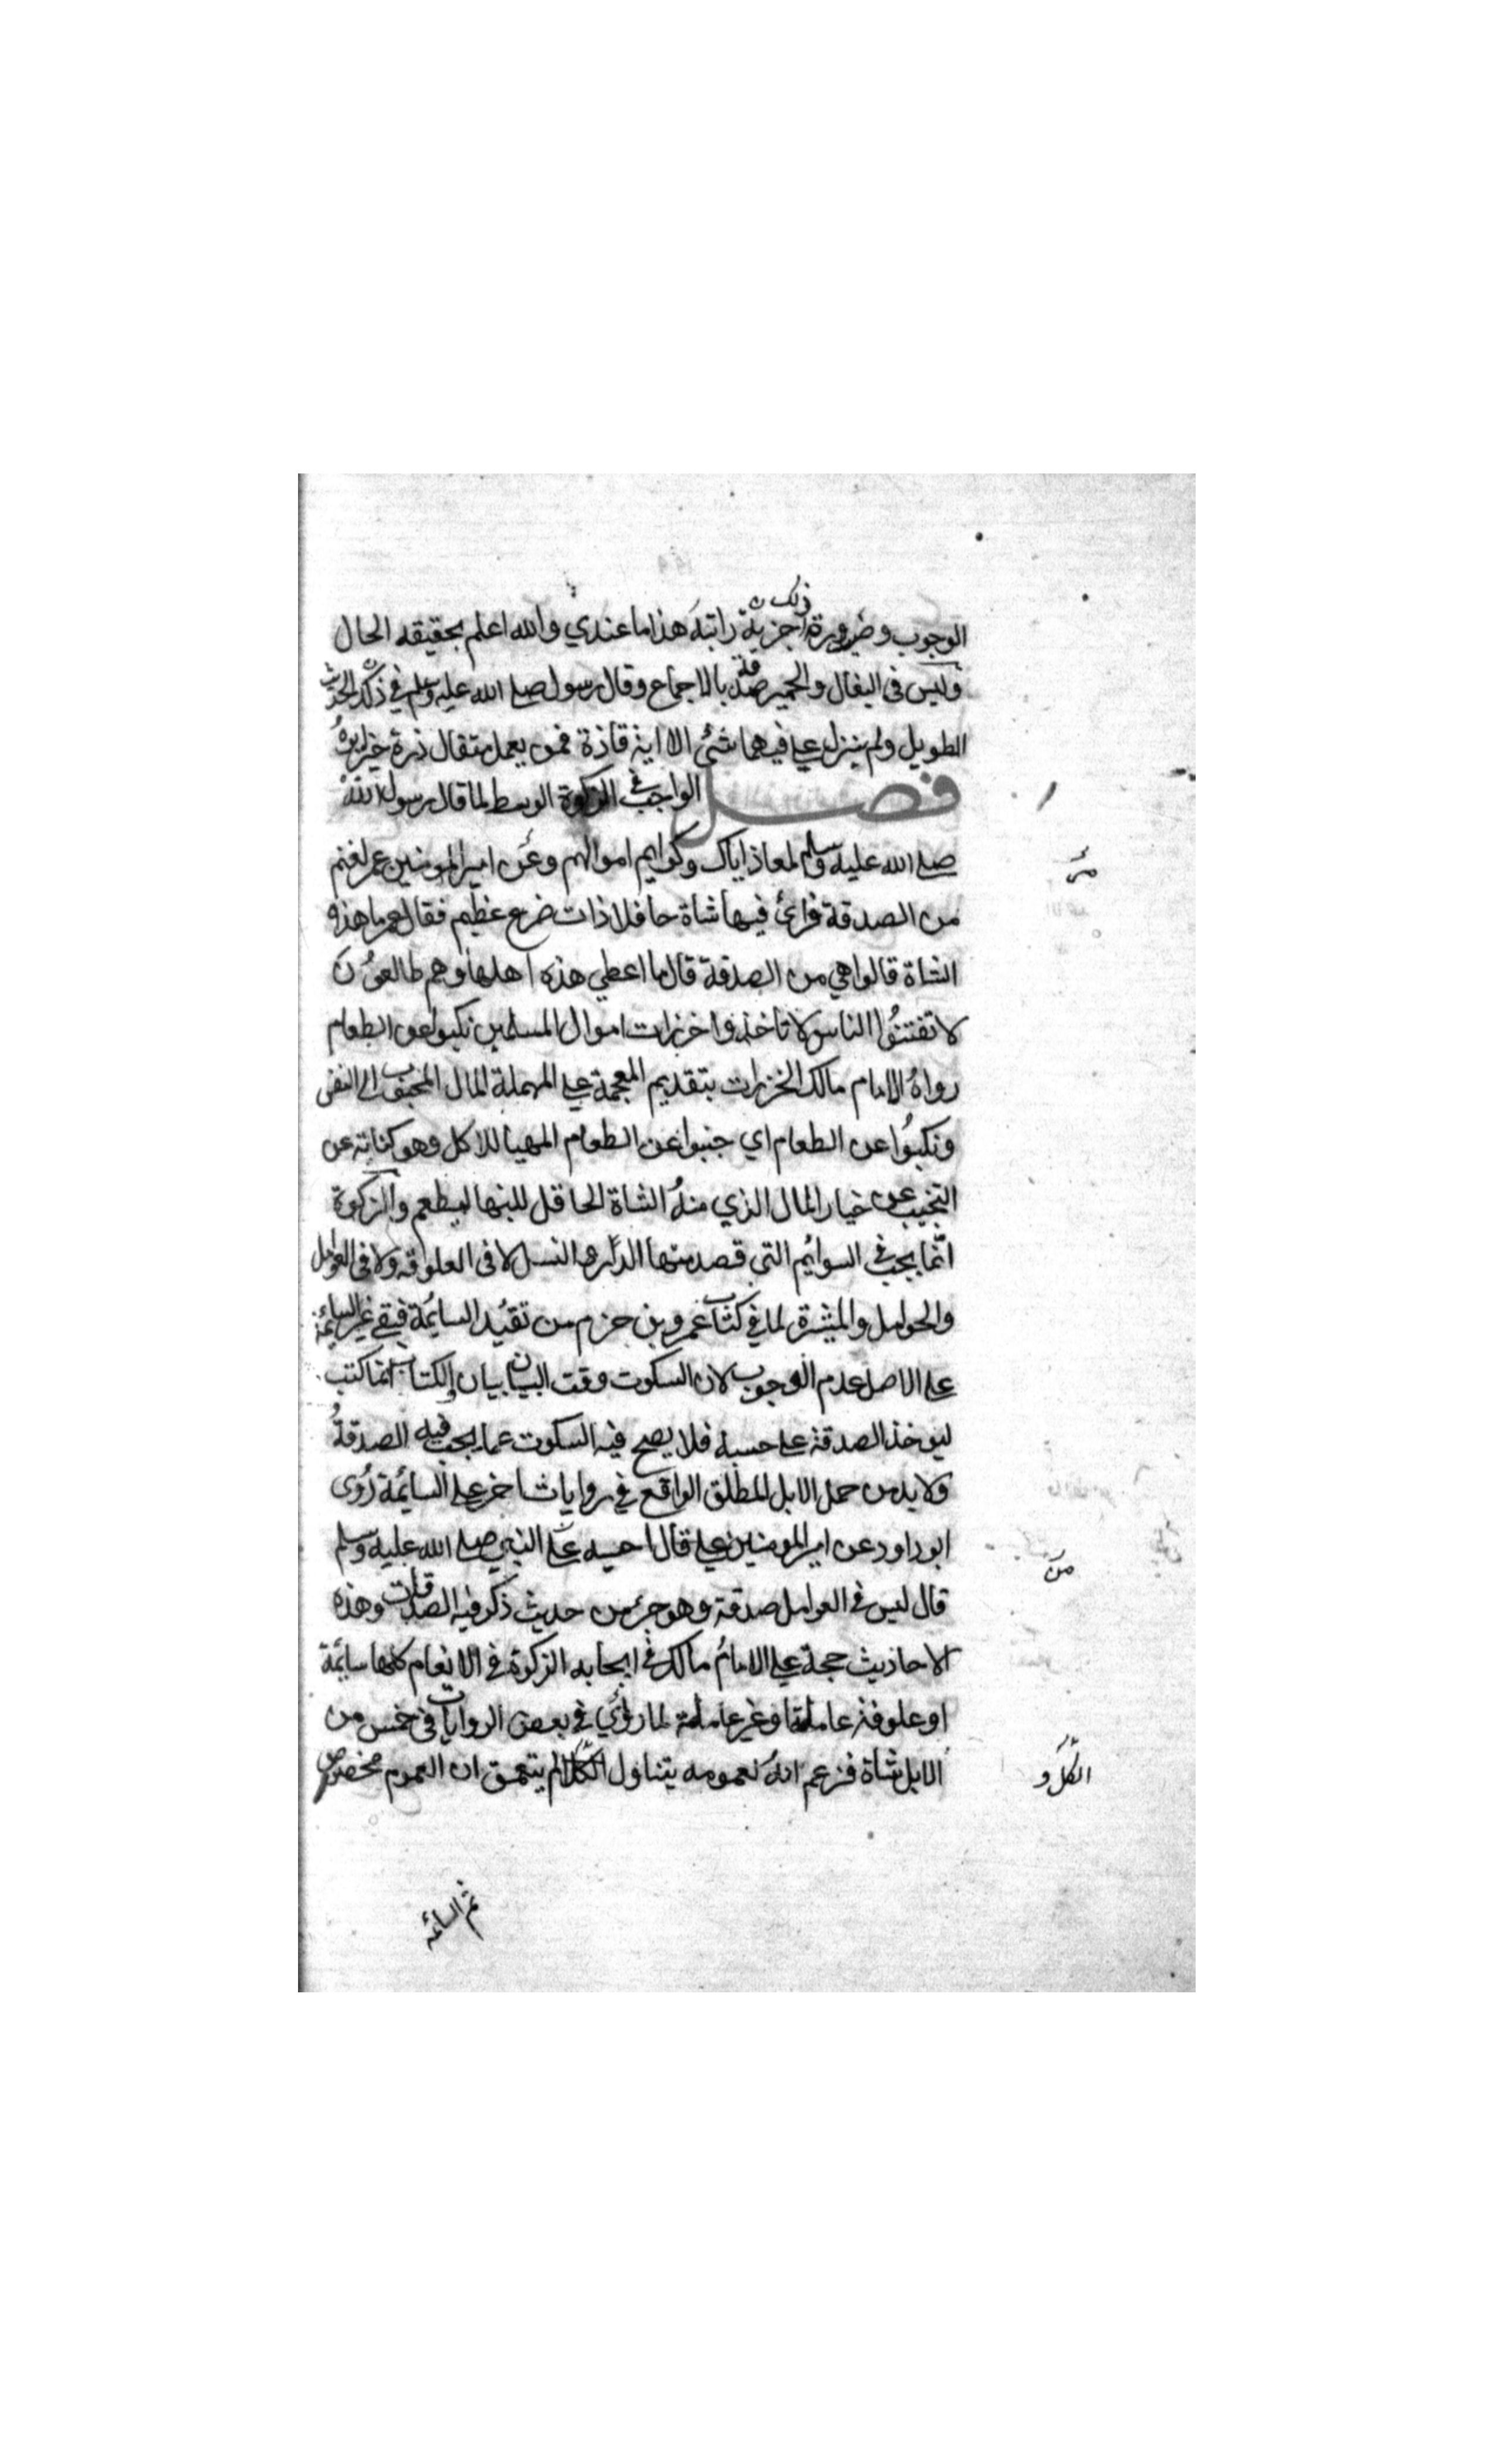 ذلك
الوجوب وضرورة اجزية راتبة هذا ما عندي والله اعلم بحقيقه الحال
وليس فى البغال والحمير صدقة بالاجماع وقال رسول صلى الله عليه وسلم في ذلك الحديث
الطويل ولم ينزل علي فيهما شئ الا اية فاذة فمن يعمل مثقال ذرة خيرا يره
فصل الواجب في الزكوة الوسط لما قال رسول الله
صلى الله عليه وسلم لمعاذ اياك وكرايم اموالهم وعن امير المومنين عمر لغنم
مر
من الصدقة فرائ فيها شاة حافلا ذات ضرع عظيم فقال عمر ما هذه
الشاة قالوا هي من الصدقة قال ما اعطي هذه اهلها وهم طالعون
لا تفتنوا الناس لا تاخذوا خزرات اموال المسلمين نكبوا عن الطعام
رواه الامام مالك الخزرات بتقديم المعجمة على المهملة المال المحبب الى النفس
ونكبوا عن الطعام اي جنبوا عن الطعام المهيا للاكل وهو كناية عن
التجنيب عن خيار المال الذي منه الشاة الحافل للبنها ليطعم والزكوة
انما يجب في السوائم التي قصد منها الدر و النسل لا فى العلوفة ولا فى العوامل
والحوامل والمثيرة لما في كتاب عمرو بن حزم من تقيد السايمة فبقي غير السائمة
على الاصل عدم الوجوب لان السكوت وقت البيان بيان والكتاب انما كتب
ليوخذ الصدقة على حسبه فلا يصح فيه السكوت عما يجب فيه الصدقة
ولا بد من حمل الابل المطلق الواقع في روايات اخر على السائمة روى
ابو داود عن امير المومنين علي قال احسبه عن النبي صلى الله عليه وسلم
قال ليس في العوامل صدقة وهو جزء من حديث ذكر فيه الصدقات وهذه
من
الاحاديث حجة على الامام مالك في ايجابه الزكوة في الانعام كلها سائمة
او علوفة عاملة او غير عاملة لما روي في بعض الروايات في خمس من
الابل شاة فزعم انه لعمومه يتناول الكل لم يتعمق ان العموم مخصوص
الكل و
ثم السائمة